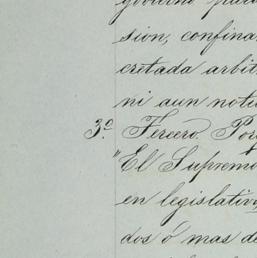 gobierno para
sion, confina
cretada arbit
ni aun noti
3º Tercero. Por
"El Supremo
en legislativ
dos ó mas de